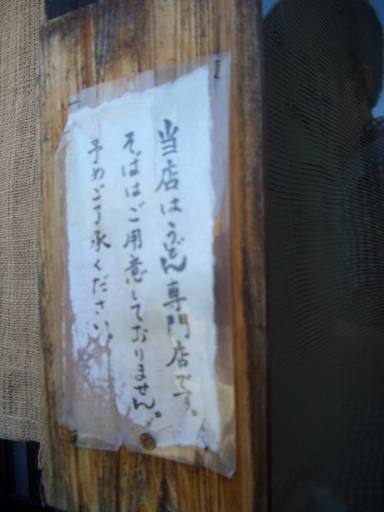 当店はうどん専門店です。
そばはご用意しておりません。
予めご了承ください。